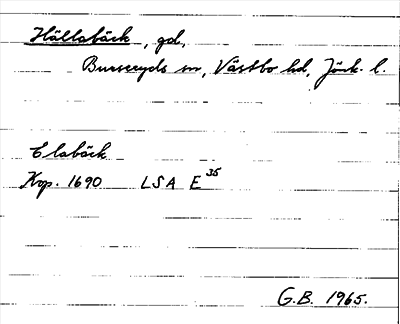 Hällabäck, gd,
Burseryds sn, Västbo hd, Jönk. l.
Elabäck
Krp. 1690 LSA E 35
G.B. 1965.